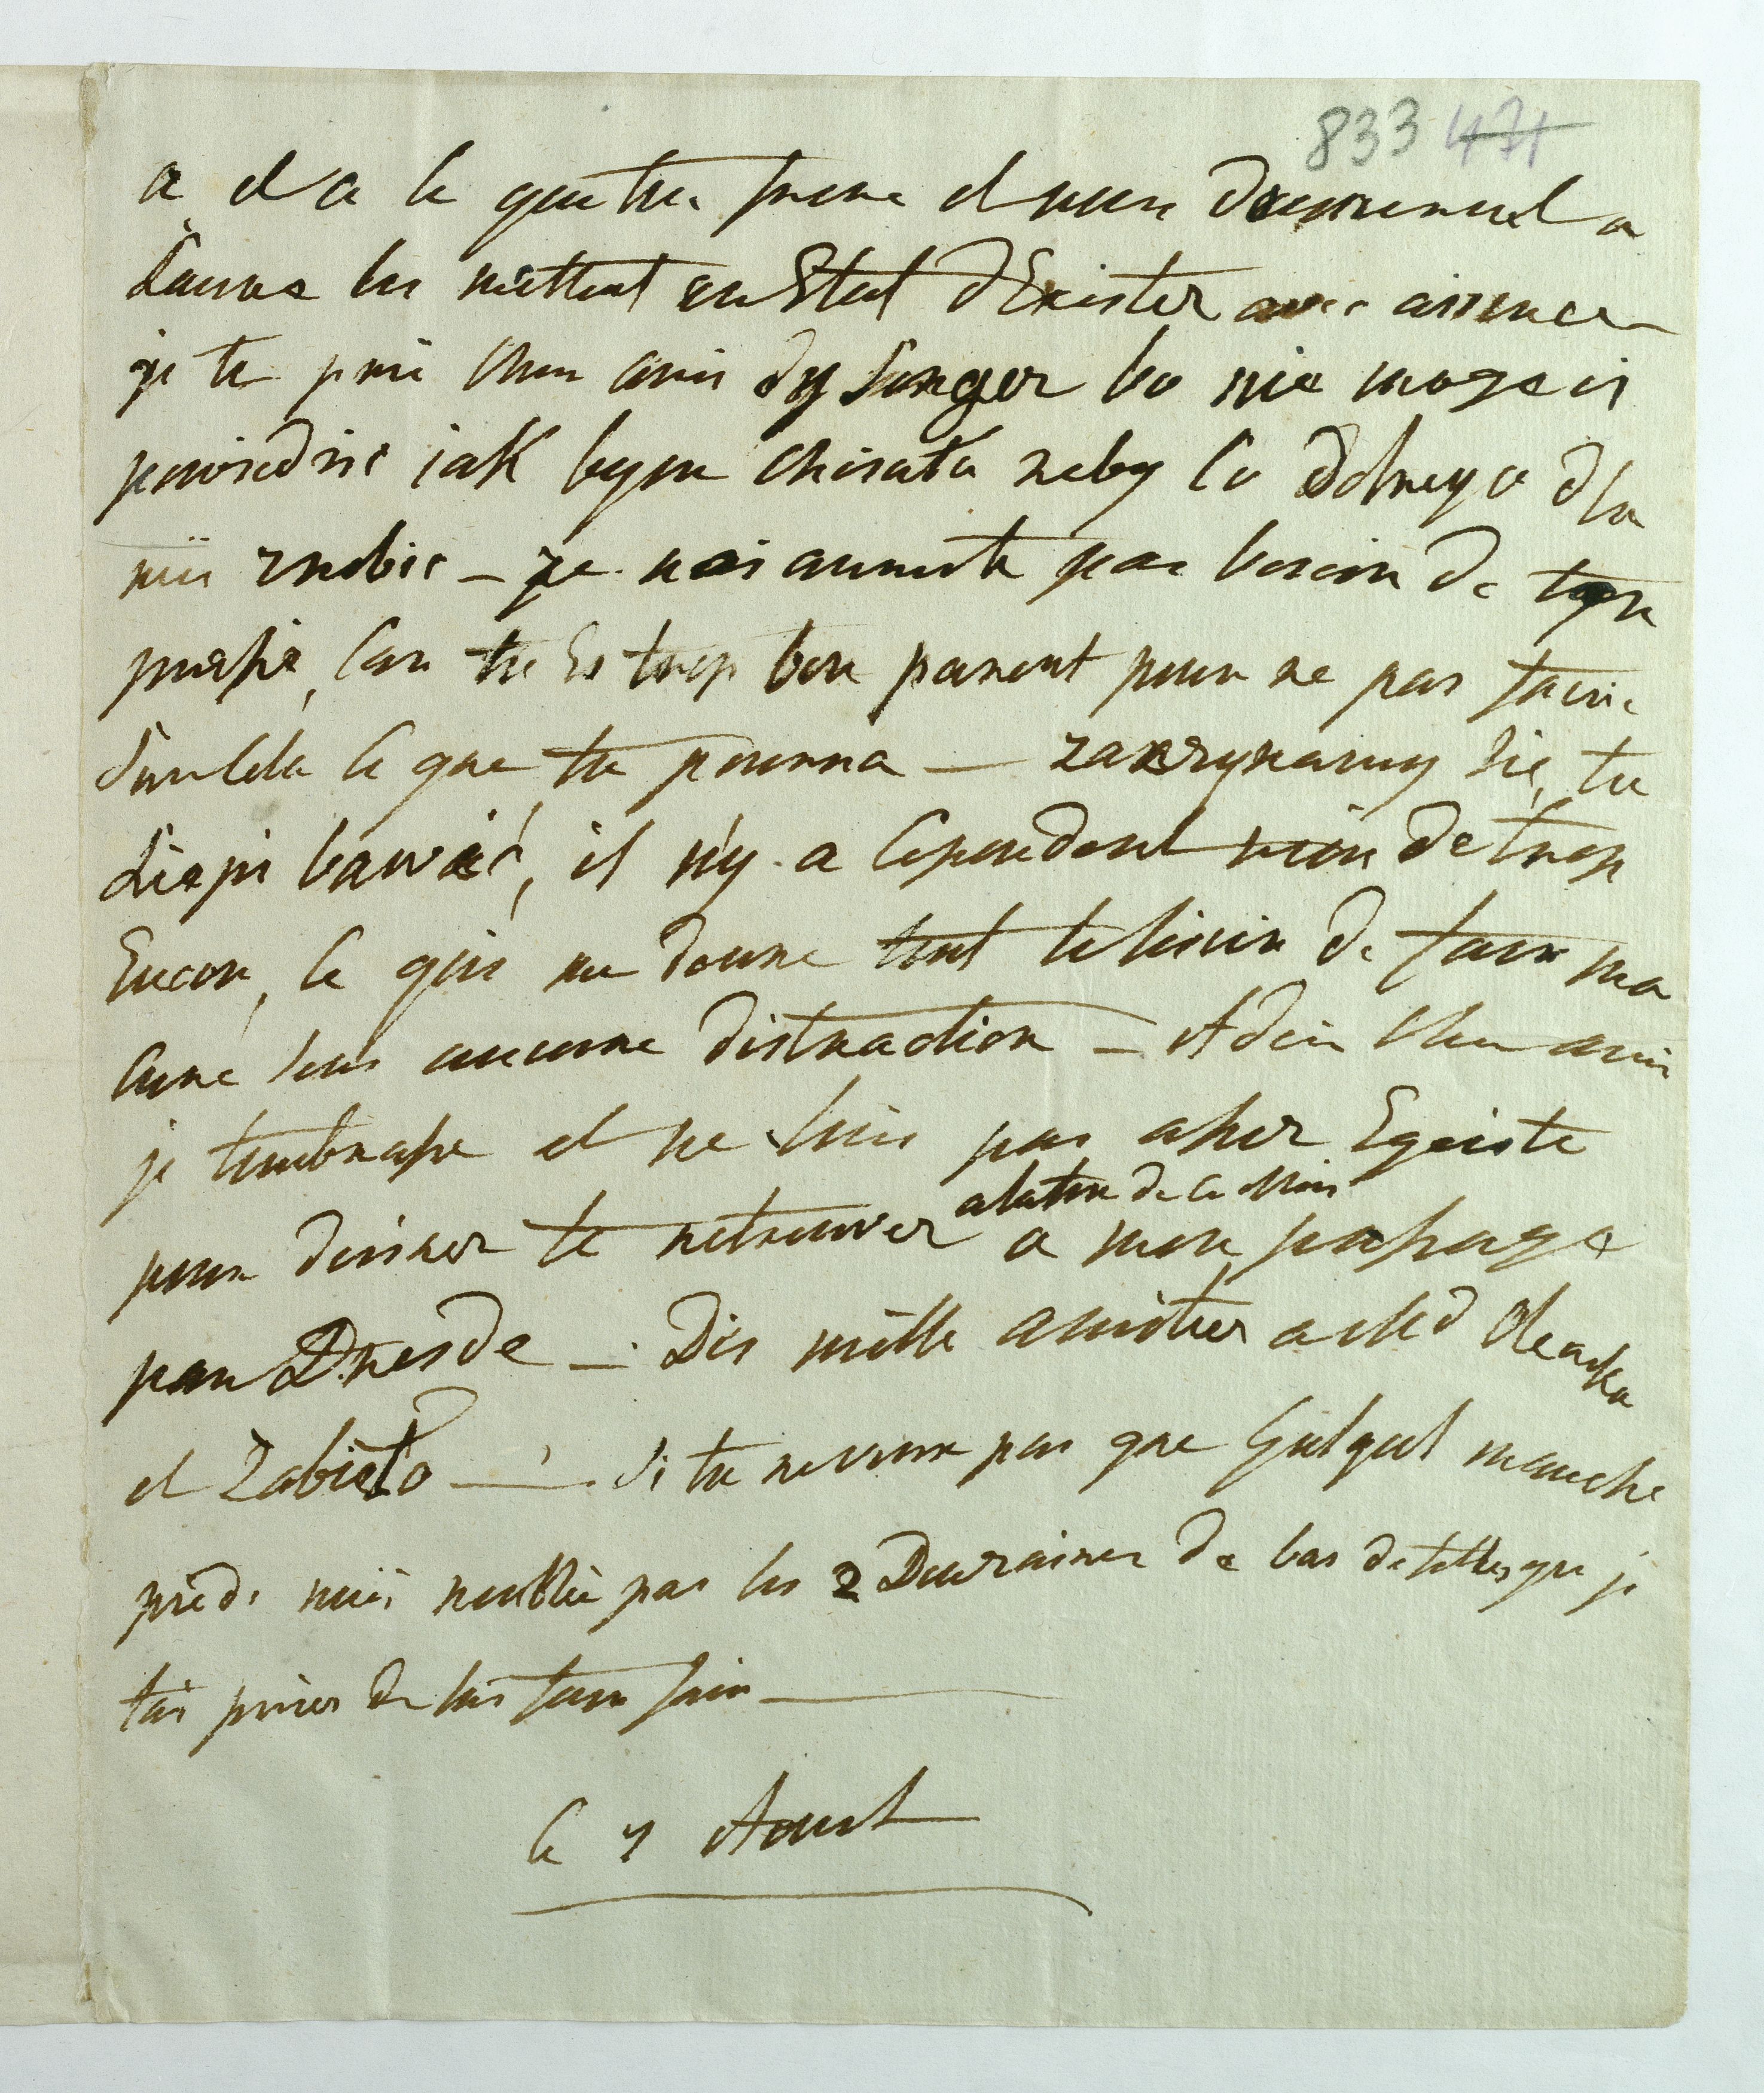 833 471
a et a ce que tu frere et moi donnerent a
Laura les mettent en Etat d'Exister avec aisence
je te prie Cher ami dy Songer bo nie moge ci
powiedzic iak bym chciała zeby co dobrego dla
nii zrobic — je nai aureste pas besoin de ten
presse, Car tu Es trop bon parent pour ne pas faire
Sur cela ce que tu pourra — zaczynamy sie tu
Liepi bawić, il n'y a Cependent rien de trop
Encor, ce qui me donne tout le loisir de faire ma
Cure sens aucune distraction — Adieu Cher ami
je tembrasse et ne suis pas assez Egoiste
pour desirer te retrouver a la fin de ce Mois a mon passage
par Dresde — Dis mille amitiés a Led Olenska
et Zabiełło — Si tu ne veux pas que Gulgul marche
pieds nuds noublie pas les 2 Douzaines de bas de telles que je
tai priés de lui faire faire —
le 7 Aoust